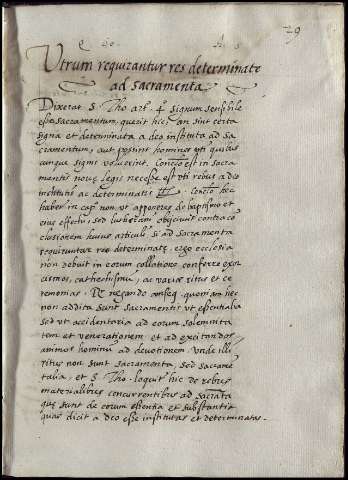 29
Utrum requirantur res determinate
ad sacramenta.
Dixerat S. Tho. art. 4 signum sensibile
esse sacramentum, querit hic, an sint certa
signa et determinata a deo instituta ad sa
cramentum, aut possint homines uti quibus
cunque signis voluerint. Conclusio est in sacra
mentis novę legis necesse est uti rebus a deo
institutis ac determinatis. Concl. hec
habet in cap. non ut apponeres de baptismo et
eius effectu, sed lutherani obijciunt contra co
clusionem huius articuli, si ad sacramenta
requiruntur res determinatę, ergo ecclesia
non debuit in eorum collatione conferre exor
cismos, cathechismū, ac varios ritus et ce
remonias. Rx negando conseq. quoniam hec
non addita sunt sacramentis ut essentialia
sed ut accidentaria ad eorum solemnita
tem et venerationem et ad excitandos
animos hominū ad devotionem. Unde illi
ritus non sunt sacramenta, sed sacrame
talia, et S. Tho. loquit hic de rebus
materialibus concurrentibus ad sacrāta
quę sunt de eorum essentia et substantia
quas dicit a deo esse institutas et determinatas.